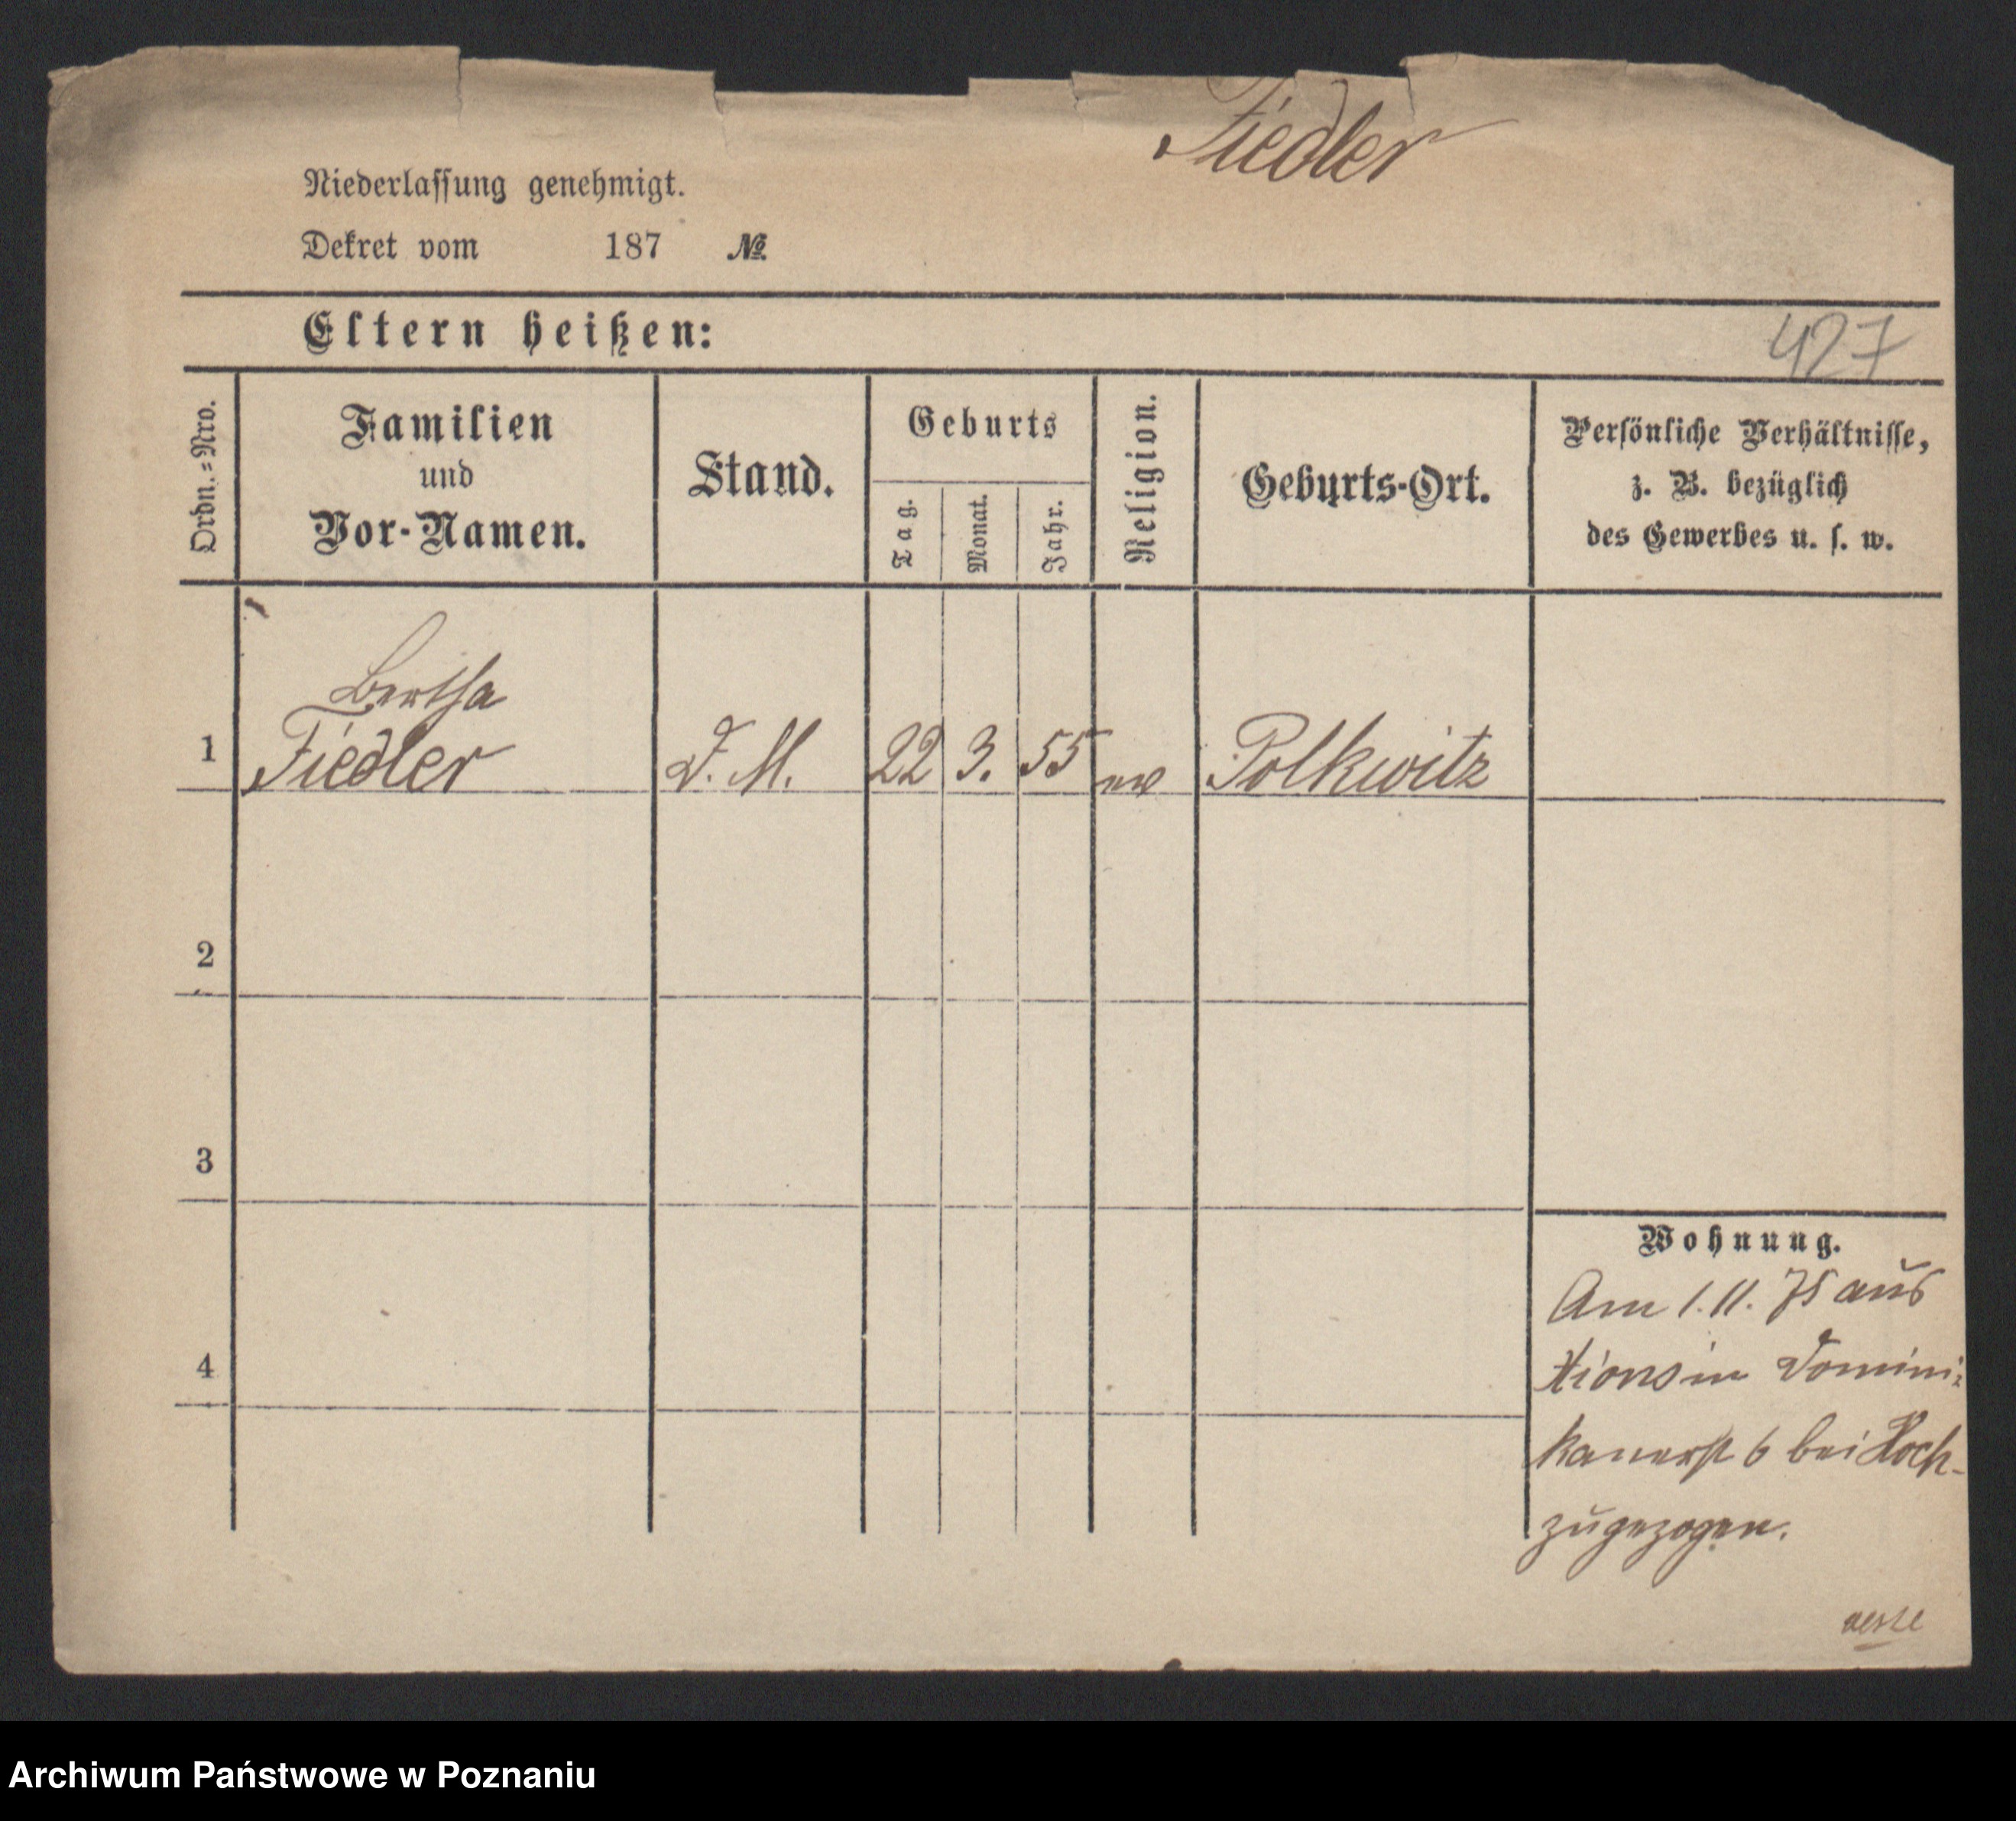 Fiedler
Niederlassung genehmigt.
Dekret vom 187 №
Eltern heißen:
427
Ordn.=Nro.
Familien
und
Vor-Namen.
Stand.
Geburts
Tag.
Monat.
Jahr.
Religion.
Geburts-Ort.
Persönliche Verhältnisse,
z. B. bezüglich
des Gewerbes u. s. w.
Bertha
1 Fiedler D. M. 22 3. 55 ev Polkwitz
2
3
4
Wohnung.
Am 1. 11. 75 aus
Xions in Domini=
kanerst 6 bei Koch
zugezogen.
Archiwum Państwowe w Poznaniu